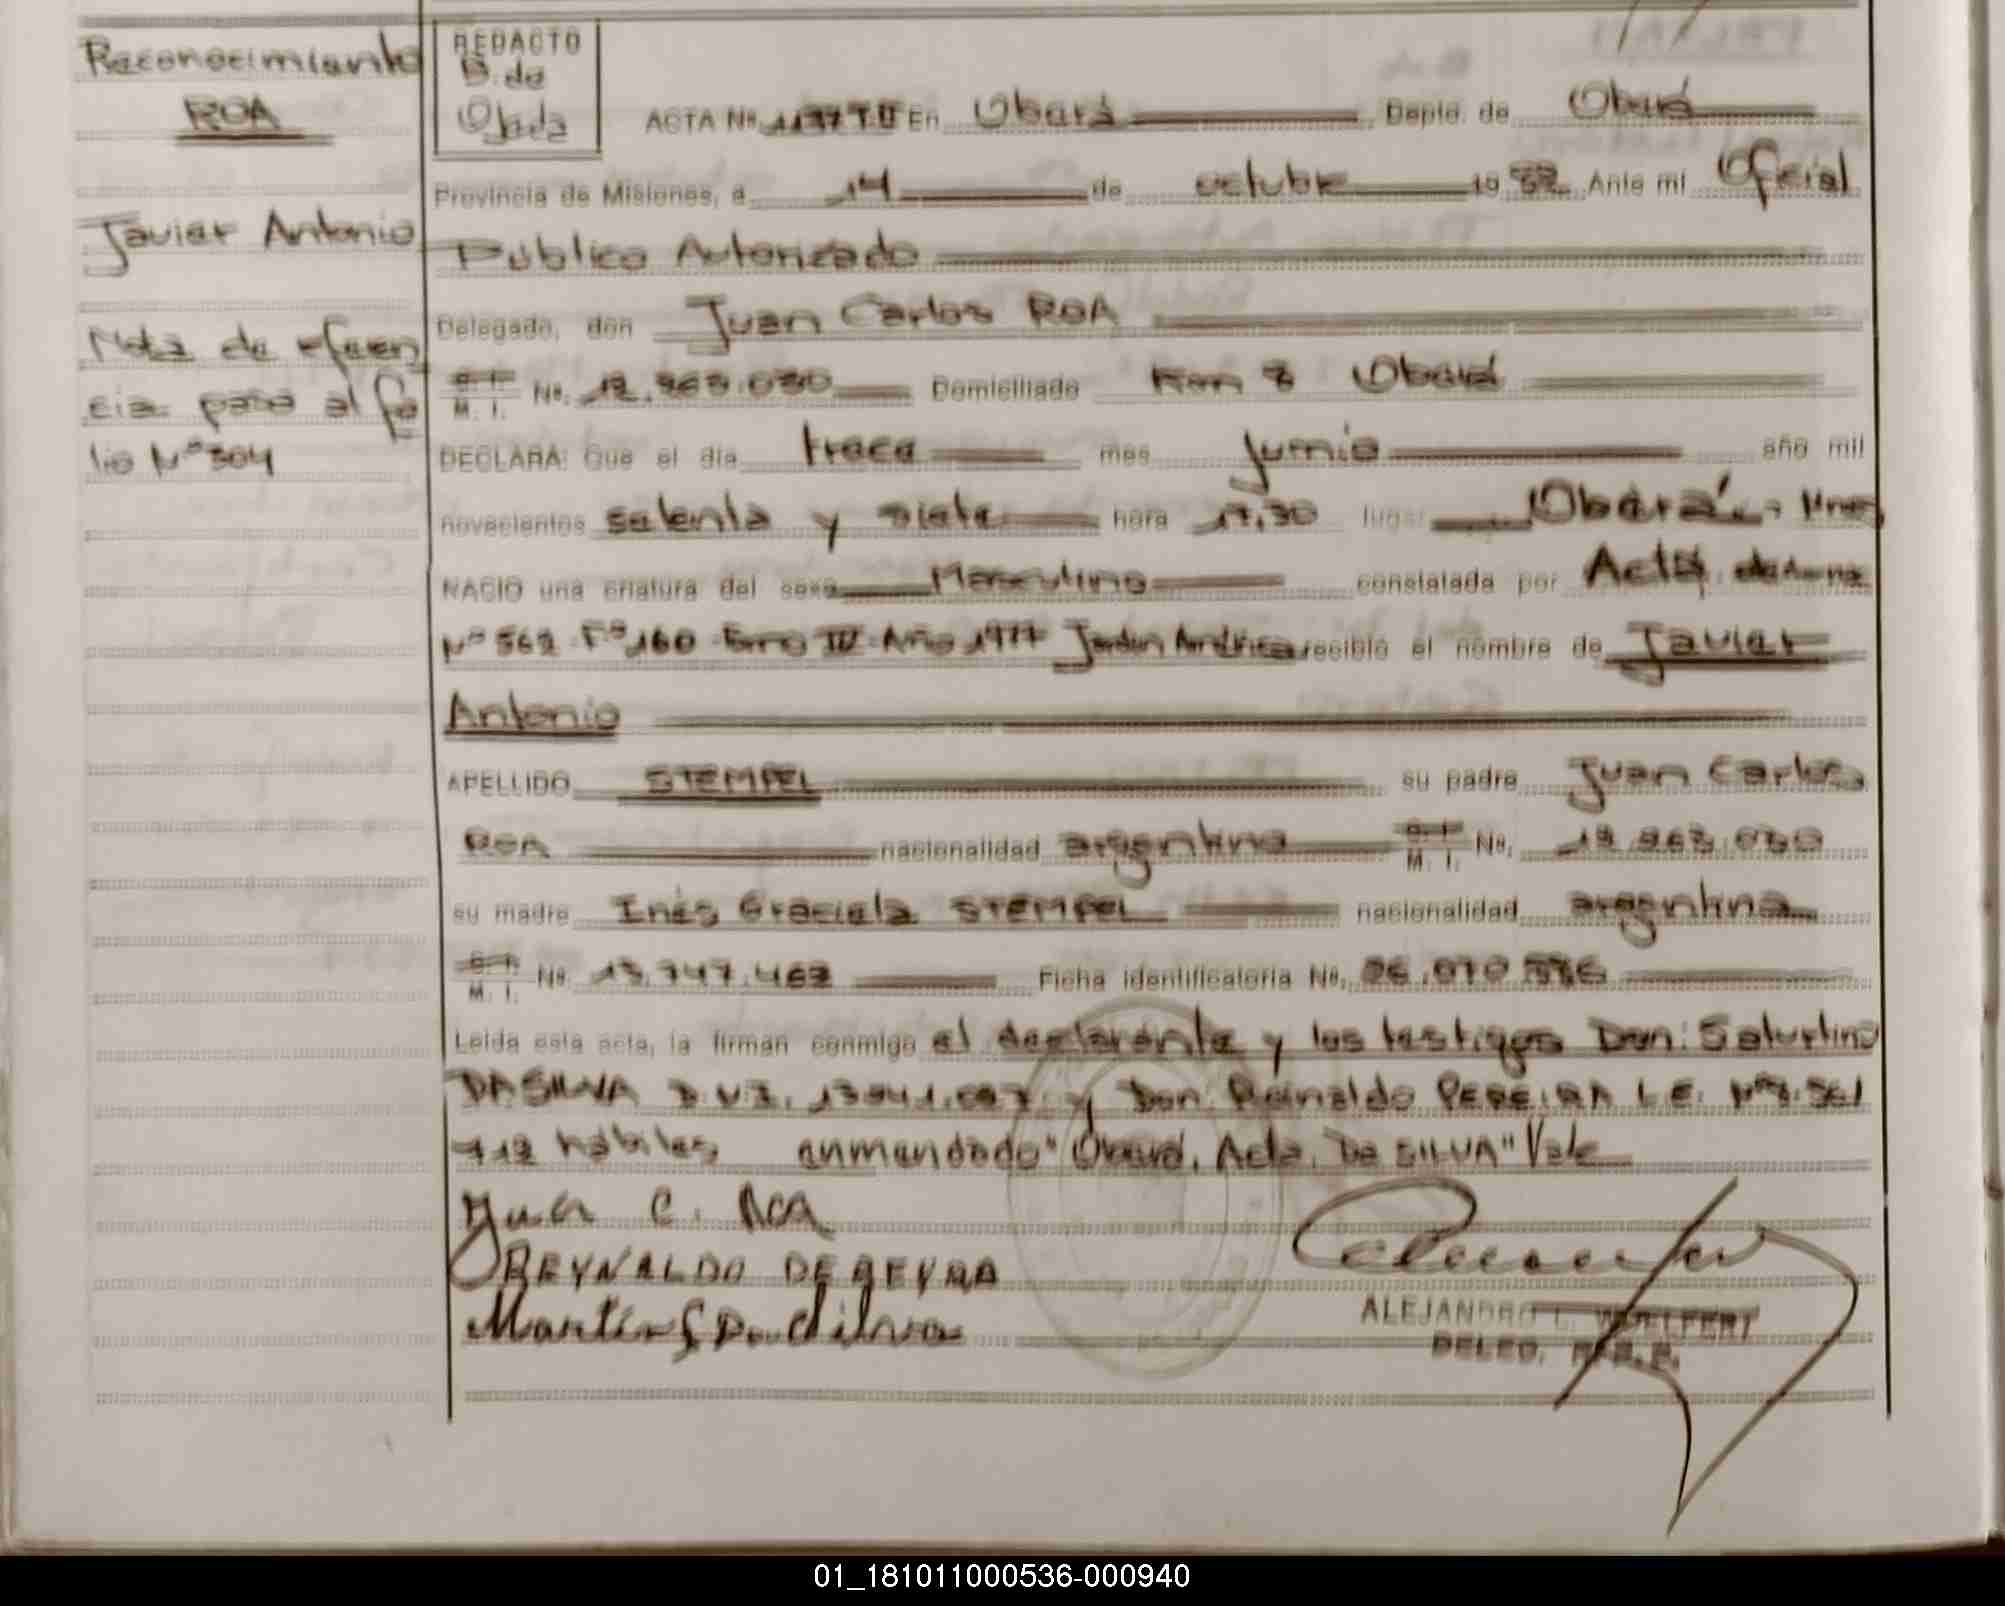 Reconocimiento
ROA
Javier Antonio
Nota de
cia pasa al fo
lio Nº 304
REDACTO
B. de
Ojeda
ACTA Nº T.II En Oberá Depto. de Oberá
Provincia de Misiones, a 14 de octubre 19 Ante mí Oficial
Público Autorizado
Delegado, don Juan Carlos ROA
C.I. M. I. Nº. Domiciliado Km 8 Oberá
DECLARA: Que el día trece mes Junio año mil
novecientos setenta y siete hora 17,30 lugar Oberá, Mnes
NACIO una criatura del sexo Masculino constatada por Acta
Nº 562 Fº 160 Tomo IV Año 1977 Jardín América recibió el nombre de Javier
Antonio
APELLIDO STEMPEL su padre Juan Carlos
ROA nacionalidad argentina C.I. M. I. Nº.
su madre Inés Graciela STEMPEL nacionalidad argentina
C.I. M. I. Nº 13.747.462 Ficha identificatoria Nº.
Leída esta acta, la firman conmigo el declarante y los testigos Don: Saturnino
DA SILVA y Don Reinaldo PEREIRA L.E. Nº
712 hábiles enmendado "Oberá, Acta, DA SILVA" Vale
Juan C. ROA
REYNALDO PEREYRA
Martín S Da Silva
ALEJANDRO L. WOELFERT
DELEG.
01_181011000536-000940